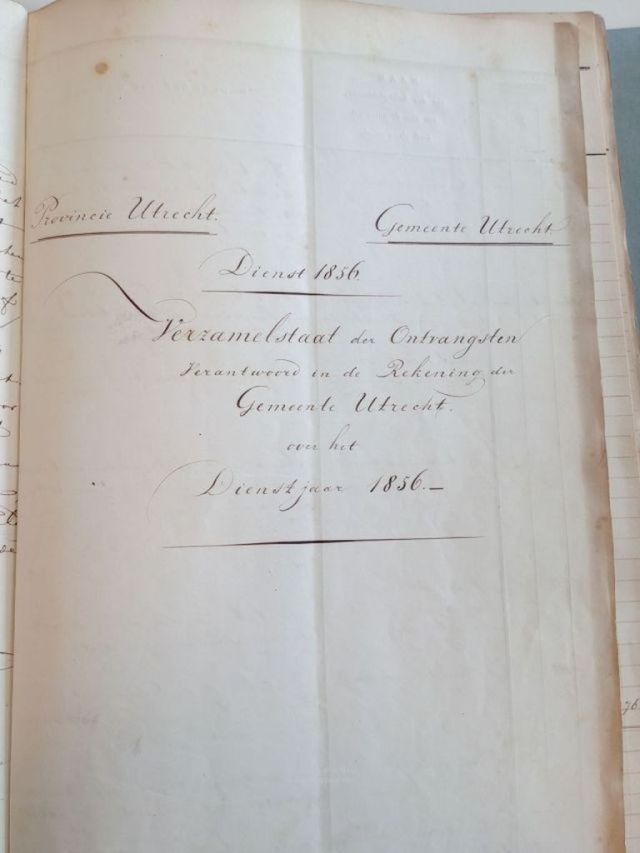 Provincie Utrecht.
Gemeente Utrecht
Dienst 1856.
Verzamelstaat der Ontvangsten
Verantwoord in de Rekening der
Gemeente Utrecht.
over het
Dienstjaar 1856.—